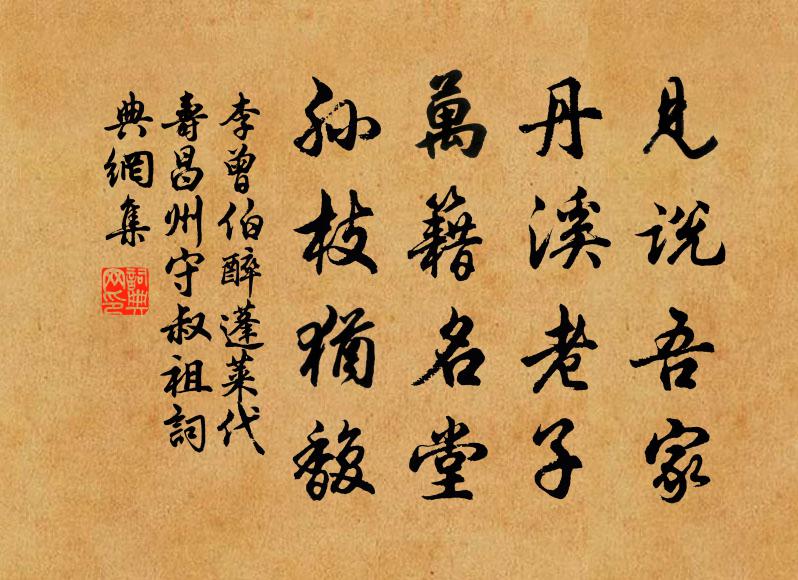 見説吾家
丹溪老子
萬籍名堂
孫枝猶馥
李曾伯醉蓬萊代
壽昌州守叔祖詞
典網集
詞典網印